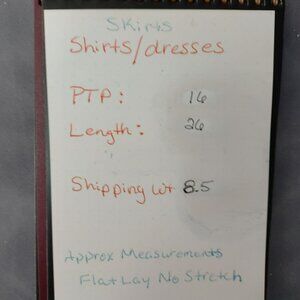 Skirts
Shirts/dresses
PTP: 16
Length: 26
Shipping wt 8.5
Approx Measurements
Flat Lay No Stretch